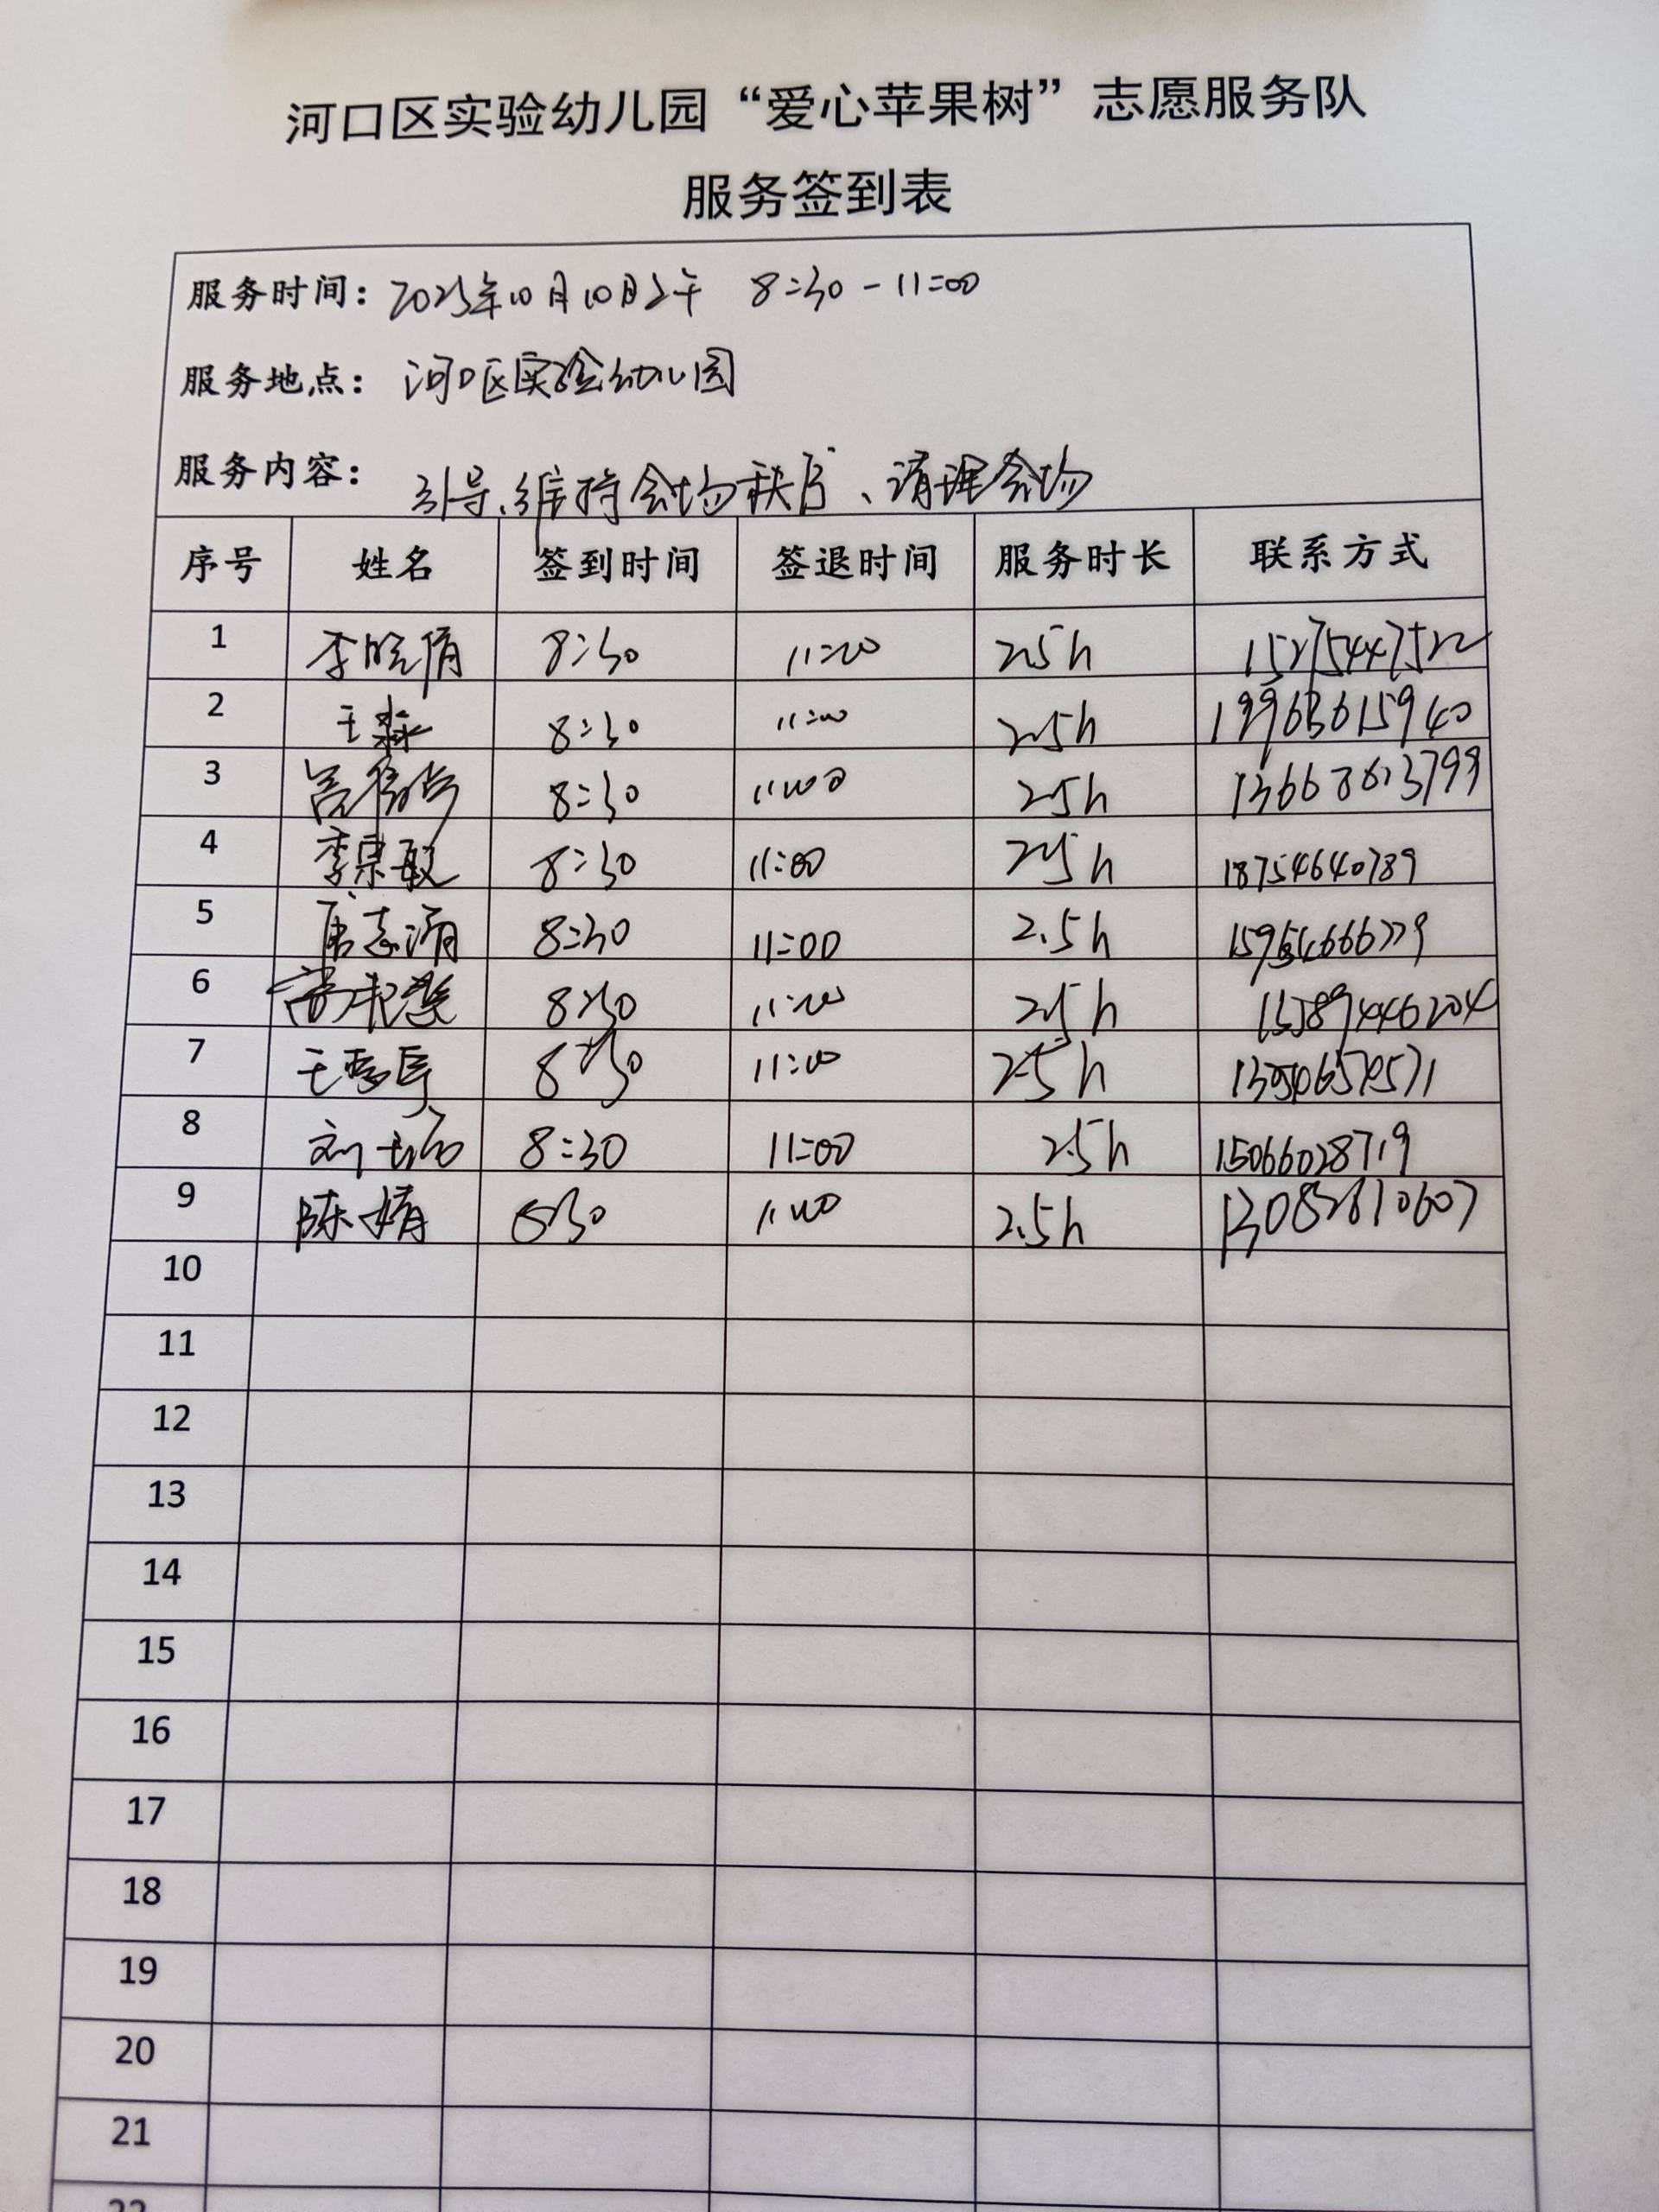 河口区实验幼儿园“爱心苹果树”志愿服务队
服务签到表
服务时间：2025年10月10日上午 8:30-11:00
服务地点：河口区实验幼儿园
服务内容：引导、维持会场秩序、清理会场
序号 姓名 签到时间 签退时间 服务时长 联系方式
1 李晓倩 8:30 11:00 2.5h 15275447522
2 王淼 8:30 11:00 2.5h 19963615940
3 8:30 11:00 2.5h
4 李宗敏 8:30 11:00 2.5h 18754640789
5 志涓 8:30 11:00 2.5h
6 8:30 11:00 2.5h
7 王 8:30 11:00 2.5h
8 刘 8:30 11:00 2.5h 15066028719
9 陈婧 8:30 11:00 2.5h
10
11
12
13
14
15
16
17
18
19
20
21
22